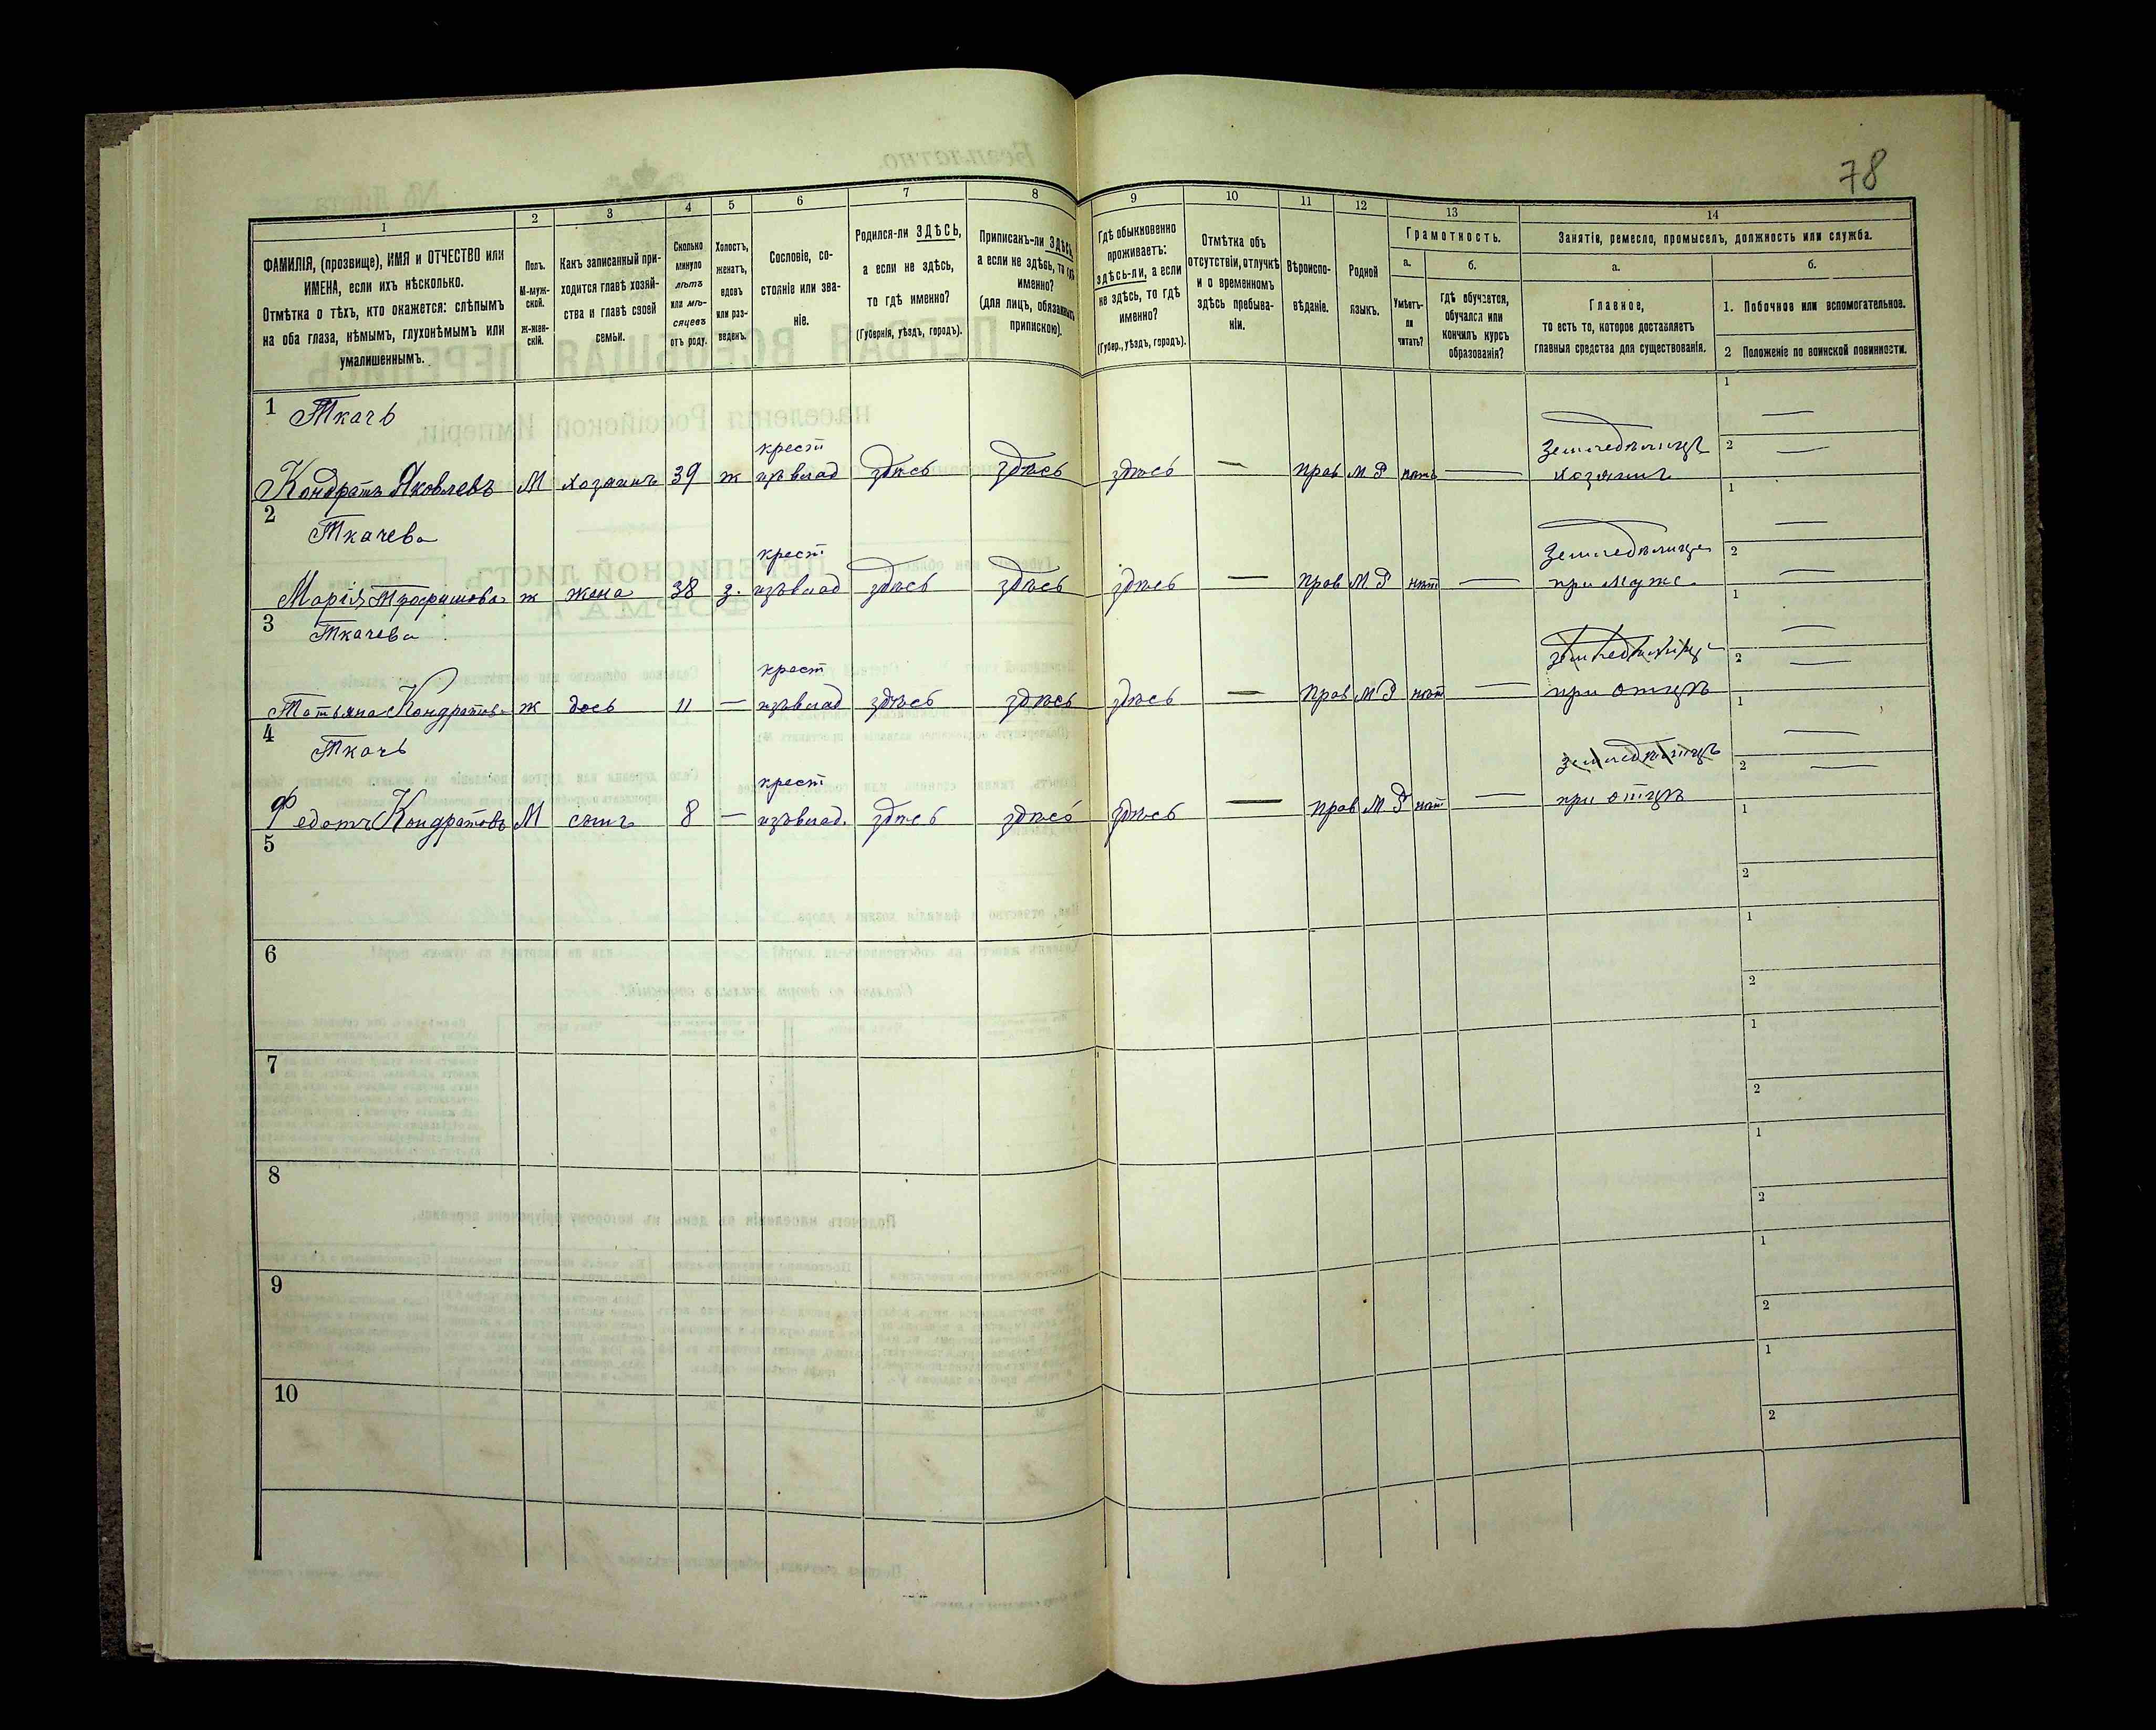 78
1
2
3
4
5
6
7
8
9
10
11
12
13
14
ФАМИЛІЯ, (прозвище), ИМЯ и ОТЧЕСТВО или
ИМЕНА, если ихъ нѣсколько.
Отмѣтка о тѣхъ, кто окажется: слѣпымъ
на оба глаза, нѣмымъ, глухонѣмымъ или
умалишеннымъ.
Полъ.
М-муж-
ской.
ж-жен-
скій.
Какъ записанный при-
ходится главѣ хозяй-
ства и главѣ своей
семьи.
Сколько
минуло
лѣтъ
или мѣ-
сяцевъ
отъ роду.
Холостъ,
женатъ,
вдовъ
или раз-
веденъ.
Сословіе, со-
стояніе или зва-
ніе.
Родился-ли ЗДѢСЬ,
а если не здѣсь,
то гдѣ именно?
(Губернія, уѣздъ, городъ).
Приписанъ-ли ЗДѢСЬ,
а если не здѣсь, то гдѣ
именно?
(для лицъ, обязанныхъ
припискою).
Гдѣ обыкновенно
проживаетъ:
здѣсь-ли, а если
не здѣсь, то гдѣ
именно?
(Губер., уѣздъ, городъ).
Отмѣтка объ
отсутствіи, отлучкѣ
и о временномъ
здѣсь пребыва-
ніи.
Вѣроиспо-
вѣданіе.
Родной
языкъ.
Грамотность.
а.
Умѣетъ-
ли
читать?
б.
Гдѣ обучается,
обучался или
кончилъ курсъ
образованія?
Занятіе, ремесло, промыселъ, должность или служба.
а.
Главное,
то есть то, которое доставляетъ
главныя средства для существованія.
б.
1. Побочное или вспомогательное.
2 Положеніе по воинской повинности.
1 Ткачъ
крест Земледѣлецъ
Кондратъ Яковлевъ М хозяинъ 39 ж изъ влад здѣсь здѣсь здѣсь — прав М Р нѣтъ — хозяинъ
1 —
2 —
2 Ткачева
крест. Земледѣлица
Марія Трофимова ж жена 38 з. изъ влад здѣсь здѣсь здѣсь — прав М Р нѣт — при муже
1 —
2 —
3 Ткачева
крест Земледѣлица
Татьяна Кондратова ж дочь 11 — изъ влад здѣсь здѣсь здѣсь — прав М Р нѣт — при отцѣ
1 —
2 —
4 Ткачъ
крест Земледѣлецъ
Федотъ Кондратовъ М сынъ 8 — изъ влад. здѣсь здѣсь здѣсь — прав М Р нѣт — при отцѣ
1 —
2 —
5
1
2
6
1
2
7
1
2
8
1
2
9
1
2
10
1
2